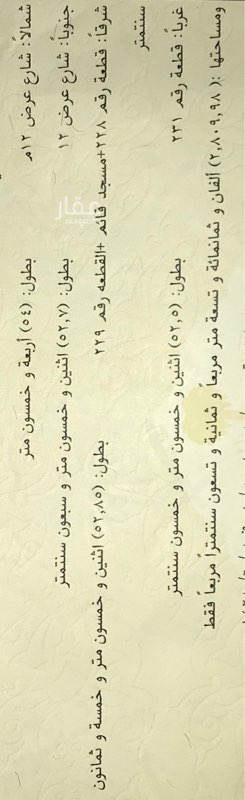 شمالاً: شارع عرض ١٢م بطول: (٥٤) أربعة و خمسون متر
جنوباً: شارع عرض ١٢ بطول: (٥٢,٧) اثنين و خمسون متر و سبعون سنتمتر
شرقاً: قطعة رقم ٢٢٨+مسجد قائم +القطعه رقم ٢٢٩ بطول: (٥٢,٨٥) اثنين و خمسون متر و خمسة و ثمانون
سنتمتر
غرباً: قطعة رقم ٢٣١ بطول: (٥٢,٥) اثنين و خمسون متر و خمسون سنتمتر
ومساحتها :( ٢,٨٠٩,٩٨) ألفان و ثمانمائة و تسعة متر مربعاً و ثمانية و تسعون سنتمتراً مربعاً فقط
عقار